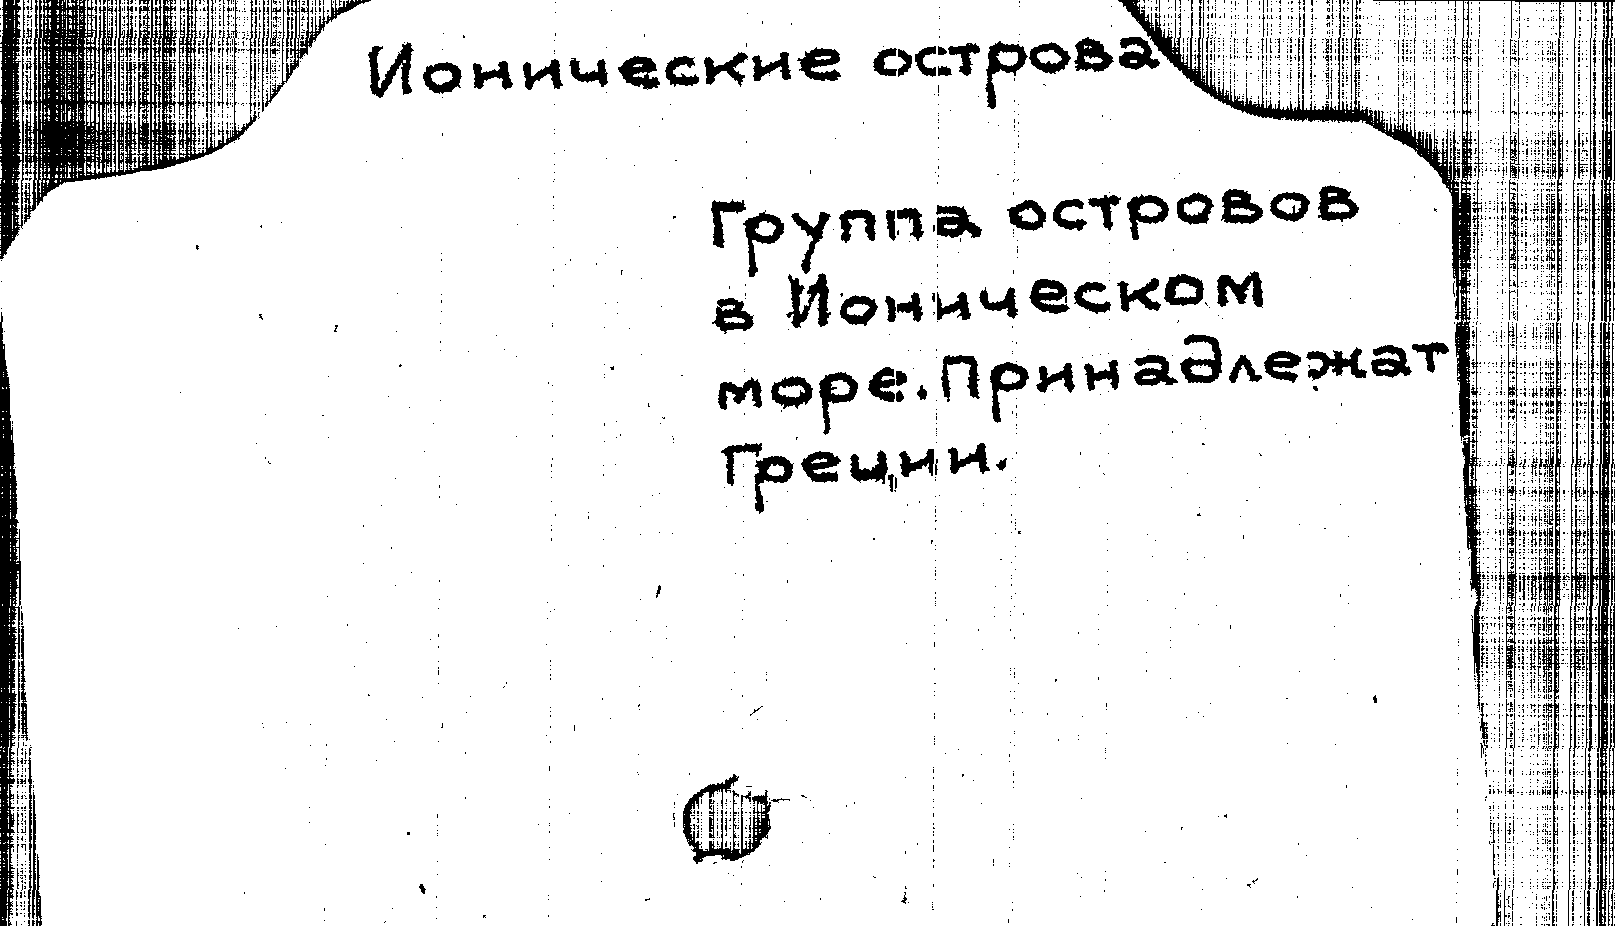 Ионические острова
Группа островов
в Ионическом
море. Принадлежат
Греции.